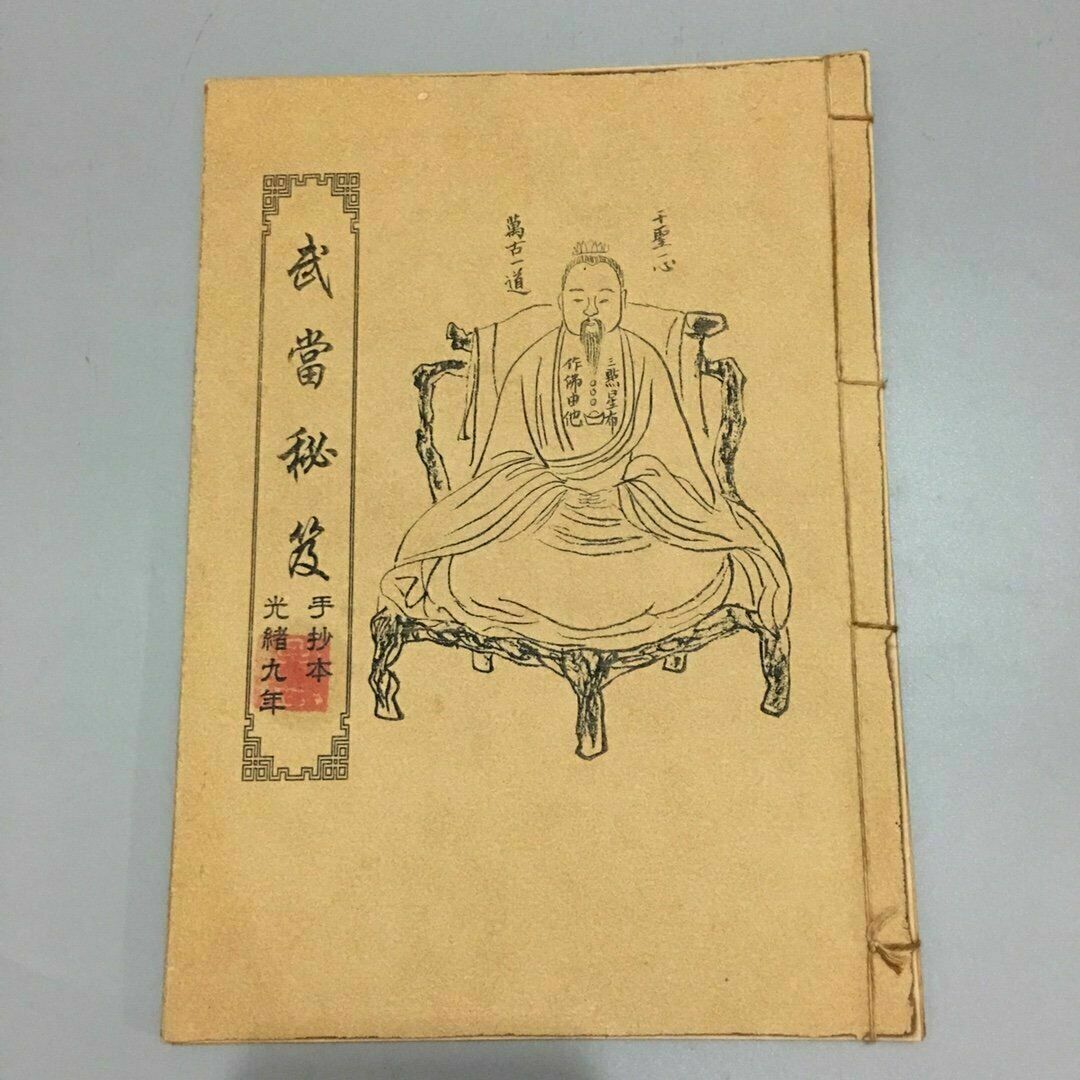 千聖一心
萬古一道
三點星布
作佛由他
武當秘笈
手抄本
光緒九年